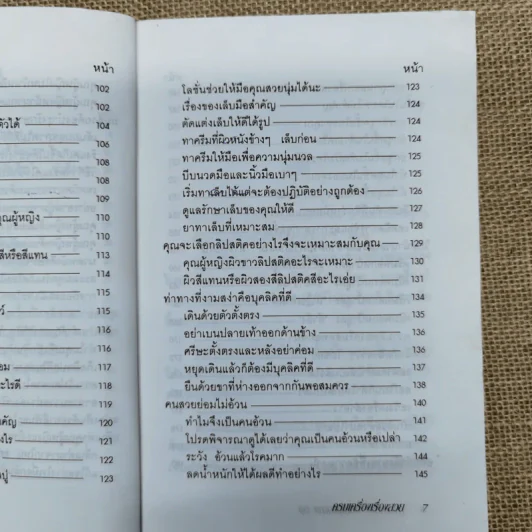 หน้า
102
102
ตัวได้ 104
106
108
108
108
คุณผู้หญิง 110
110
สีหรือสีแทน 113
113
114
115
115
116
117
118
119
120
121
121
123
หน้า
โลชั่นช่วยให้มือคุณสวยนุ่มได้นะ 123
เรื่องของเล็บมือสำคัญ 124
ตัดแต่งเล็บให้ดีได้รูป 124
ทาครีมที่ผิวหนังข้างๆ เล็บก่อน 124
ทาครีมให้มือเพื่อความนุ่มนวล 125
บีบนวดมือและนิ้วมือเบาๆ 125
เริ่มทาเล็บได้แต่จะต้องปฏิบัติอย่างถูกต้อง 126
ดูแลรักษาเล็บของคุณให้ดี 127
ยาทาเล็บที่เหมาะสม 128
คุณจะเลือกลิปสติคอย่างไรจึงจะเหมาะสมกับคุณ 129
คุณผู้หญิงผิวขาวลิปสติคอะไรจะเหมาะ 130
ผิวสีแทนหรือผิวสองสีลิปสติคสีอะไรเอ่ย 131
ท่าทางที่งามสง่าคือบุคลิคที่ดี 134
เดินด้วยตัวตั้งตรง 135
อย่าเบนปลายเท้าออกด้านข้าง 136
ศรีษะตั้งตรงและหลังอย่าค่อม 136
หยุดเดินแล้วก็ต้องมีบุคลิคที่ดี 137
ยืนด้วยขาที่ห่างออกจากกันพอสมควร 138
คนสวยย่อมไม่อ้วน 140
ทำไมจึงเป็นคนอ้วน 141
โปรดพิจารณาดูได้เลยว่าคุณเป็นคนอ้วนหรือเปล่า 142
ระวัง อ้วนแล้วโรคมาก 144
ลดน้ำหนักให้ได้ผลดีทำอย่างไร 145
7